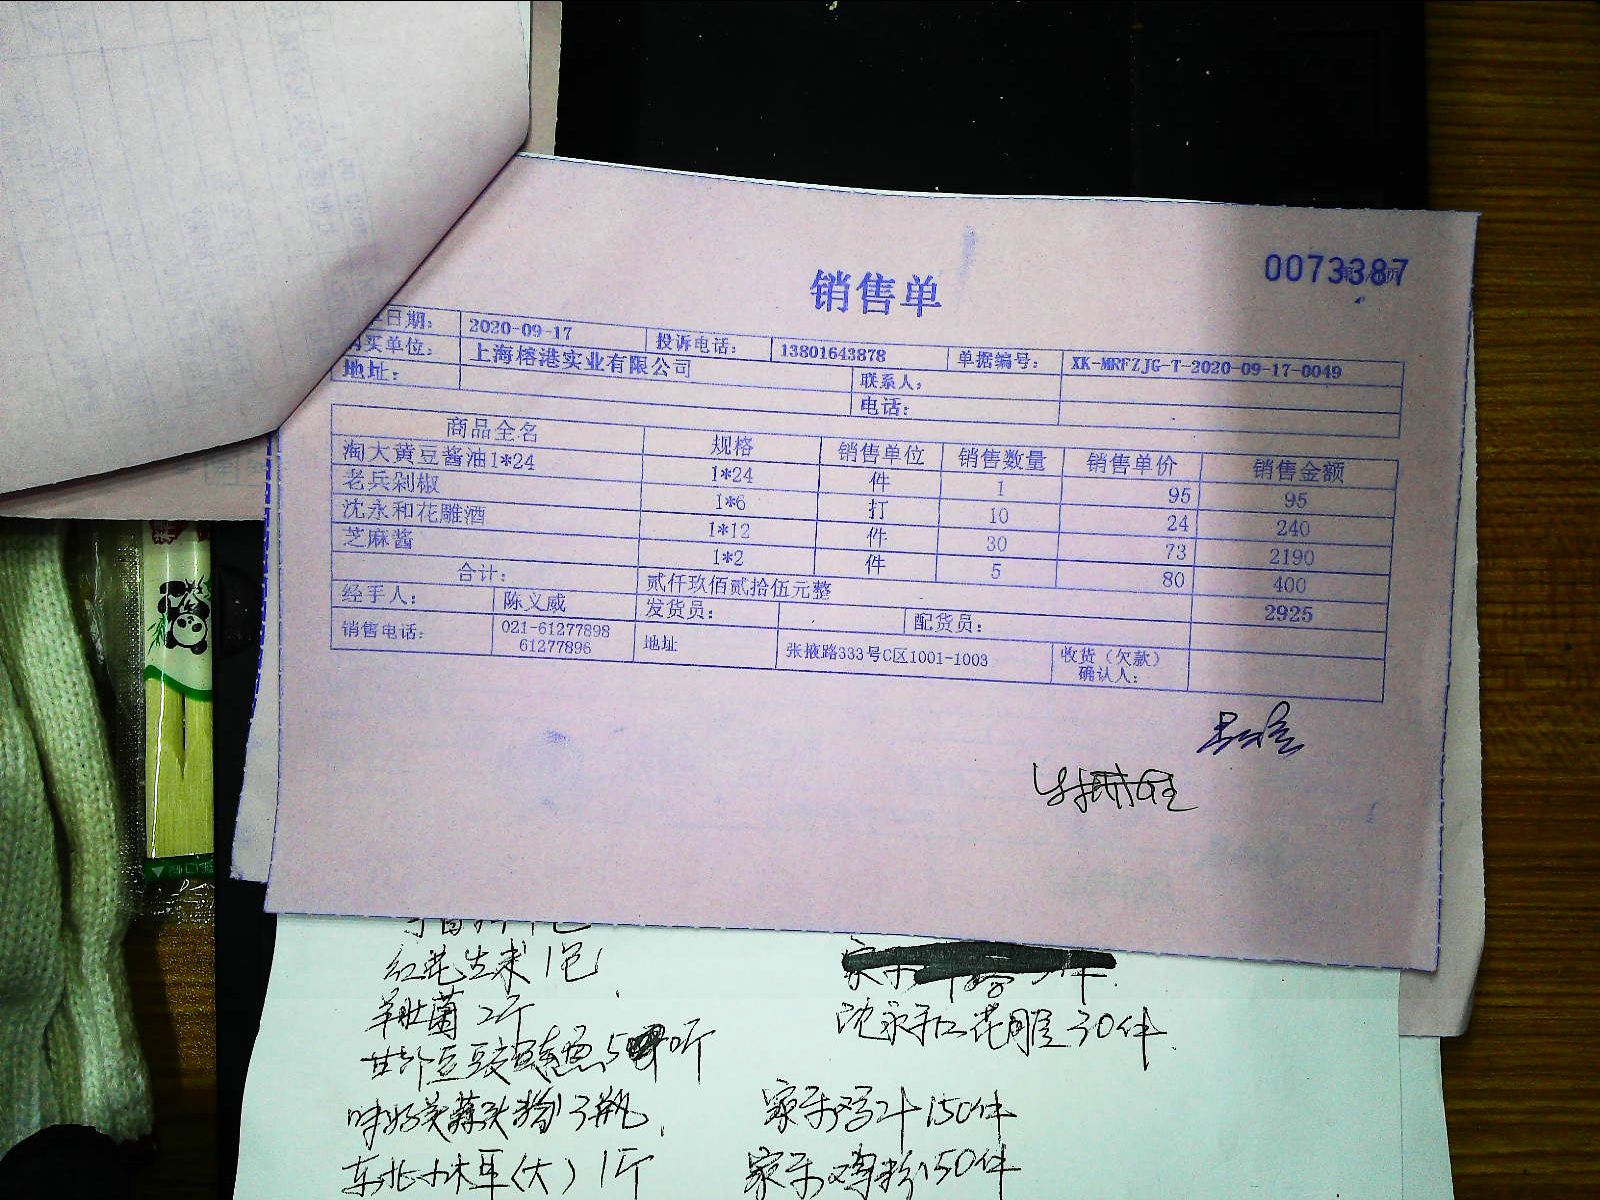 销售单
0073387
日期: 2020-09-17 投诉电话: 13801643878 单据编号: XK-MRFZJG-T-2020-09-17-0049
购买单位: 上海榕港实业有限公司
地址: 联系人:
电话:
商品全名 规格 销售单位 销售数量 销售单价 销售金额
淘大黄豆酱油1*24 1*24 件 1 95 95
老兵剁椒 1*6 打 10 24 240
沈永和花雕酒 1*12 件 30 73 2190
芝麻酱 1*2 件 5 80 400
合计: 贰仟玖佰贰拾伍元整 2925
经手人: 陈义威 发货员: 配货员:
销售电话: 021-61277898 61277896 地址 张掖路333号C区1001-1003 收货(欠款)确认人:
红花生米1包
羊肚菌2斤 沈永和花雕30件
味好美蒜头粉3瓶 家乐鸡汁150件
东北小木耳(大)1斤 家乐鸡粉150件